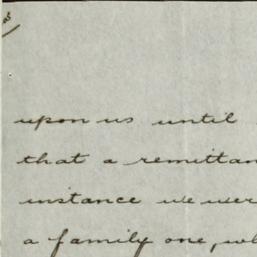 upon us until
that a remittan
instance we wer
a family one, wh